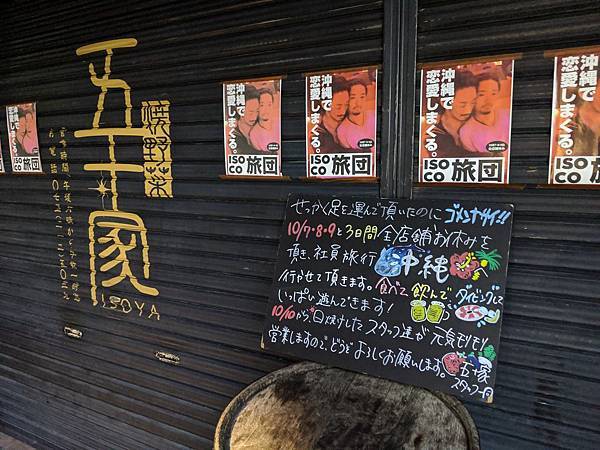 焼野菜
五十家
ISOYA
沖縄で
恋愛しまくる。
ISO
CO 旅団
沖縄で
恋愛しまくる。
ISO
CO 旅団
沖縄で
恋愛しまくる。
ISO
CO 旅団
沖縄で
恋愛しまくる。
ISO
CO 旅団
沖縄で
恋愛しまくる。
ISO
CO 旅団
せっかく足を運んで頂いたのにゴメンナサイ!!
10/7・8・9と3日間全店舗お休みを
頂き、社員旅行 沖縄
行かせて頂きます。食べて飲んでダイビングして
いっぱい遊んできます!
10/10から日焼けしたスタッフ達が元気モリモリ
営業しますので、どうぞよろしくお願いします。
スタッフ一同